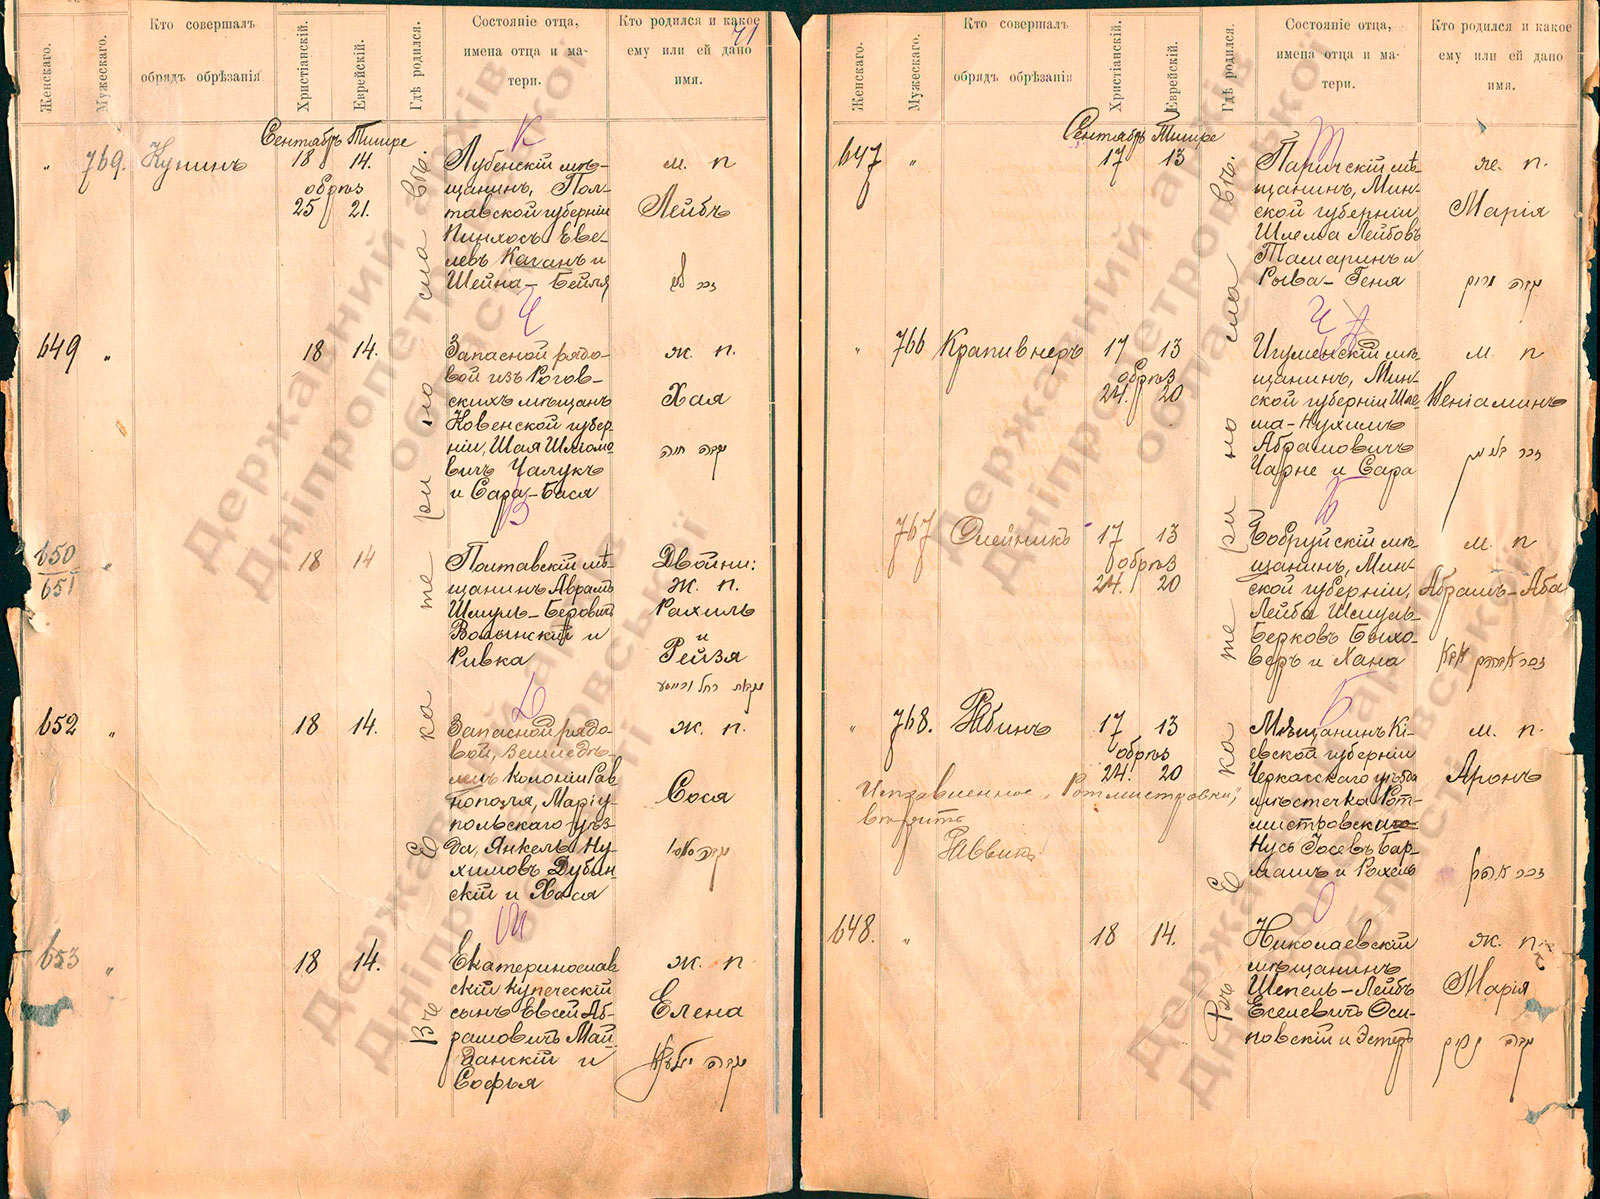 41
Женскаго.
Мужескаго.
Кто совершалъ
обрядъ обрѣзанія
Христіанскій.
Еврейскій.
Гдѣ родился.
Состояніе отца,
имена отца и ма-
тери.
Кто родился и какое
ему или ей дано
имя.
Сентябрь Тишре
К
" 769. Кунинъ 18 14.
обрѣз
25 21.
Въ Екатеринославѣ.
Лубенскій мѣ-
щанинъ, Пол-
тавской губерніи
Пинхосъ Еве-
левъ Каганъ и
Шейна-Бейля
м. п
Лейбъ
Ч
649 " 18 14.
Запасной рядо-
вой изъ Рогов-
скихъ мѣщанъ
Ковенской губер
ніи, Шая Шліомо
вичъ Чалукъ
и Сара-Бася
ж. п.
Хая
נקבה חיה
В
650
651
18 14
Полтавскій мѣ
щанинъ Аврамъ
Шмуль-Беровичъ
Волынскій и
Ривка
Двойни:
Ж. п.
Рахиль
и
Рейзя
Д
652 " 18 14.
Запасной рядо-
вой, Землед
колоніи Рав
нополя, Маріу-
польскаго уѣз-
да, Янкель Ну-
химовъ Дубин-
скій и Хася
ж. п.
Сося
М
653 " 18 14.
Екатеринослав
скій купеческій
сынъ Евсей Аб-
рамовичъ Май
данскій и
Софья
ж. п
Елена
Женскаго.
Мужескаго.
Кто совершалъ
обрядъ обрѣзанія
Христіанскій.
Еврейскій.
Гдѣ родился.
Состояніе отца,
имена отца и ма-
тери.
Кто родился и какое
ему или ей дано
имя.
Сентябрь Тишре
Т
647 " 17 13
Въ Екатеринославѣ.
Паричскій мѣ
щанинъ, Мин-
ской губерніи
Шлема Лейбовъ
Тамаринъ и
Рыва-Геня
же. п.
Марія
Ч
" 766 Крапивнеръ 17 13
обрѣз
24. 20
Игуменскій мѣ-
щанинъ, Мин-
ской губерніи Шле-
ма-Нухимъ
Абрамовичъ
Чарне и Сара
м. п
Веніаминъ
Б
767 Олейникъ 17 13
обрѣз
24. 20
Бобруйскій мѣ-
щанинъ, Мин-
ской губерніи,
Лейба Шмуль-
Берковъ Быхо-
веръ и Хана
м. п
Абрамъ-Аба
Б
" 768. Рабинъ 17 13
обрѣз
24. 20
Исправленное „Ротмистровки,"
вѣрить
Раввинъ
Мѣщанинъ Кі-
евской губерніи
Черкасскаго уѣзда
мѣстечка Рот-
мистровск
Нусь Іосевъ Бар-
машъ и Рыхель
м. п.
Аронъ
О
648. " 18 14.
Николаевскій
мѣщанинъ
Шепель-Лейбъ
Еселевичъ Оси-
повскій и Эстеръ
ж. п.
Марія
Державний архів
Дніпропетровської
області